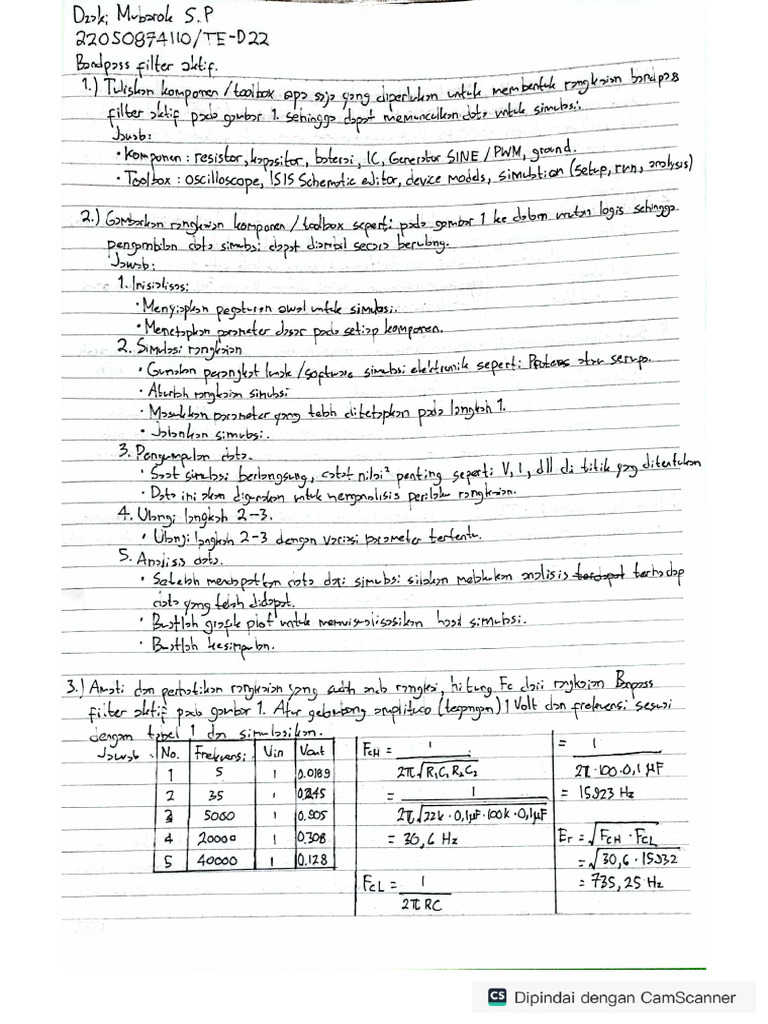 Dzaki Mubarok S.P
22050874110/TE-D22
Bandpass filter aktif.
1.) Tuliskan komponen/toolbox apa saja yang diperlukan untuk membentuk rangkaian bandpas
filter aktif pada gambar 1. sehingga dapat memunculkan data untuk simulasi.
Jawab:
• Komponen : resistor, kapasitor, baterai, IC, Generator SINE / PWM, ground.
• Toolbox : oscilloscope, ISIS Schematic editor, device models, simulation (setup, run, analysis)
2.) Gambarkan rangkaian komponen / toolbox seperti pada gambar 1 ke dalam urutan logis sehingga
pengambilan data simulasi dapat diambil secara berulang.
Jawab:
1. Inisialisas:
• Menyiapkan pegaturan awal untuk simulasi.
• Menetapkan parameter dasar pada setiap komponen.
2. Simulasi rangkaian
• Gunakan perangkat lunak /software simulasi elektronik seperti Proteus atau serupa.
• Aturlah rangkaian simulasi
• Masukkan parameter yang telah ditetapkan pada langkah 1.
• Jalankan simulasi.
3. Pengumpulan data.
• Saat simulasi berlangsung, catat nilai² penting seperti V, I, dll di titik yang ditentukan
• Data ini akan digunakan untuk menganalisis perilaku rangkaian.
4. Ulangi langkah 2-3.
• Ulangi langkah 2-3 dengan variasi parameter tertentu.
5. Analisis data.
• Setelah mendapatkan data dari simulasi silakan melakukan analisis terdapat terhadap
data yang telah didapat.
• Buatlah grafik plot untuk memvisualisasikan hasil simulasi.
• Buatlah kesimpulan.
3.) Amati dan perhatikan rangkaian yang sudah anda rangkai, hitung Fc dari rangkaian Banpass
filter aktif pada gambar 1. Atur gelombang amplitudo (tegangan) 1 Volt dan frekuensi sesuai
dengan tabel 1 dan simulasikan.
Jawab:
No. Frekuensi Vin Vout
1 5 1 0.0189
2 35 1 0.245
3 5000 1 0.905
4 20000 1 0.308
5 40000 1 0.128
FcH = 1
2π√R₁C₁R₂C₂
= 1
2π√22k·0,1μF·100k·0,1μF
= 30,6 Hz
FcL = 1
2π RC
= 1
2π·100·0,1 μF
= 15923 Hz
Fr = √FcH · FcL
= √30,6 · 15932
= 735,25 Hz
CS Dipindai dengan CamScanner